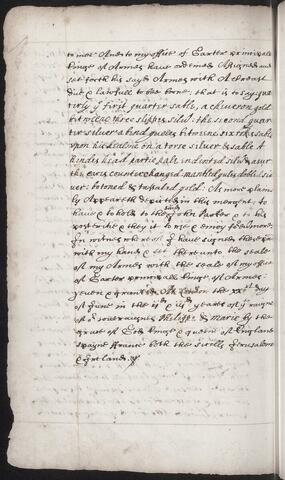 to mee And to my office of Garter prinsipall
kinge of Armes have ordened Asigned and
set forth his sayd Armes with A Creast
due & lawfull to bee borne, that is to say qua
terly y first quarter sable, a cheveron gold
betweene three slipps silvr. the second quar
ter silver a bend gueles betwixt six
upon his healme on a torse silver & sable A
hindes head partie palle indented silvr Asur
the eares counterchanged mantled gules dobled sil
ver: botoned & tasseled gold: As more plain
ly Appeareth depicted in this margent, to
have & to hold to the sayd John & to his
posteritie & they it to use & enioy for evermore.
In witnes whereof I have signed these
with my hand & set there unto the seale
of my Armes with the seale of my office
of Garter prinsipall kinge of Armes.
yeven & graunted At London the xxth day
of June in the & yeares of y raigne
of or soveraignes Philippe & Marie by the
grace of God kinge & queen of England
spayne France both the sicills Jerusalem
& Irland